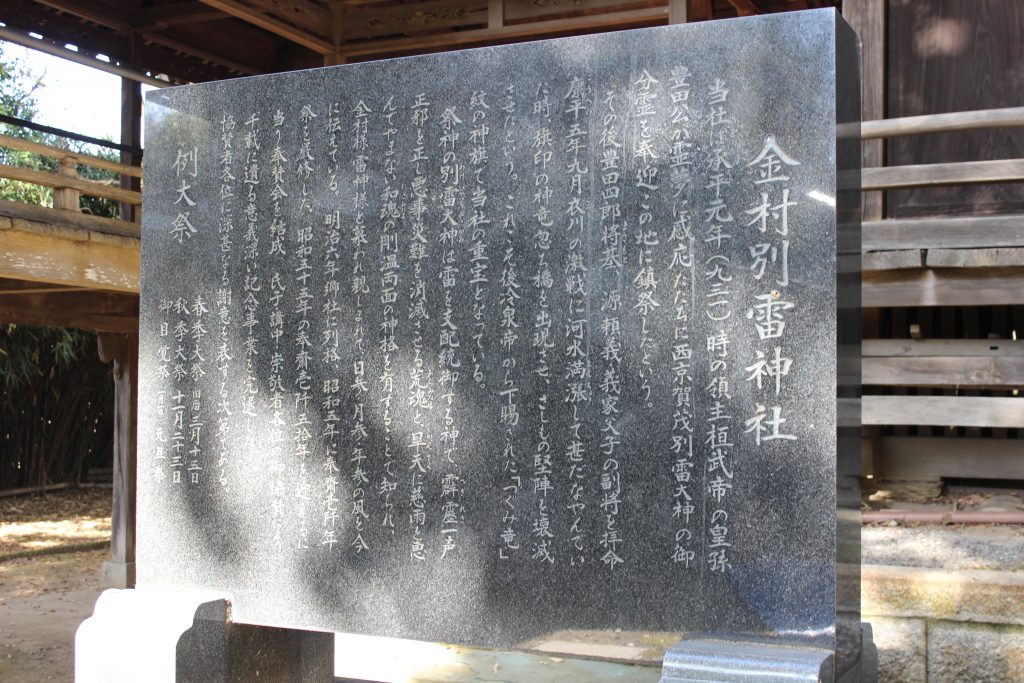 金村別雷神社
当社は承平元年(九三一)時の領主桓武帝の皇孫
豊田公が霊夢に感応ただちに西京賀茂別雷大神の御
分霊を奉迎この地に鎮祭したという。
その後豊田四郎将基 源頼義 義家父子の副将を拝命
康平五年九月衣川の激戦に河水満漲して甚だなやんでい
た時、旗印の神竜忽ち橋を出現させ、さしもの堅陣を壊滅
させたという。これこそ後冷泉帝から下賜された「くみ竜」
紋の神旗で当社の重宝となっている。
祭神の別雷大神は雷を支配統御する神で 霹靂一声
正邪を正し悪事災難を消滅させる荒魂と、旱天に慈雨を恵
んでやまない和魂の剛温両面の神格を有することで知られ、
金村様雷神様と慕われ親しまれて日参 月参 年参の風を今
に伝えている。 明治六年郷社に列格 昭和五年に奉斎壱阡年
祭を厳修した。昭和五十五年の奉斎壱阡五拾年を迎するに
当り奉賛会を結成 氏子 講中 崇敬者各位の
千載に遺る意義深い記念事業を完遂
協賛者各位に深甚なる謝意を表する次第である。
例大祭
春季大祭 旧暦三月十五日
秋季大祭 十一月二十三日
御日覚祭 元旦祭